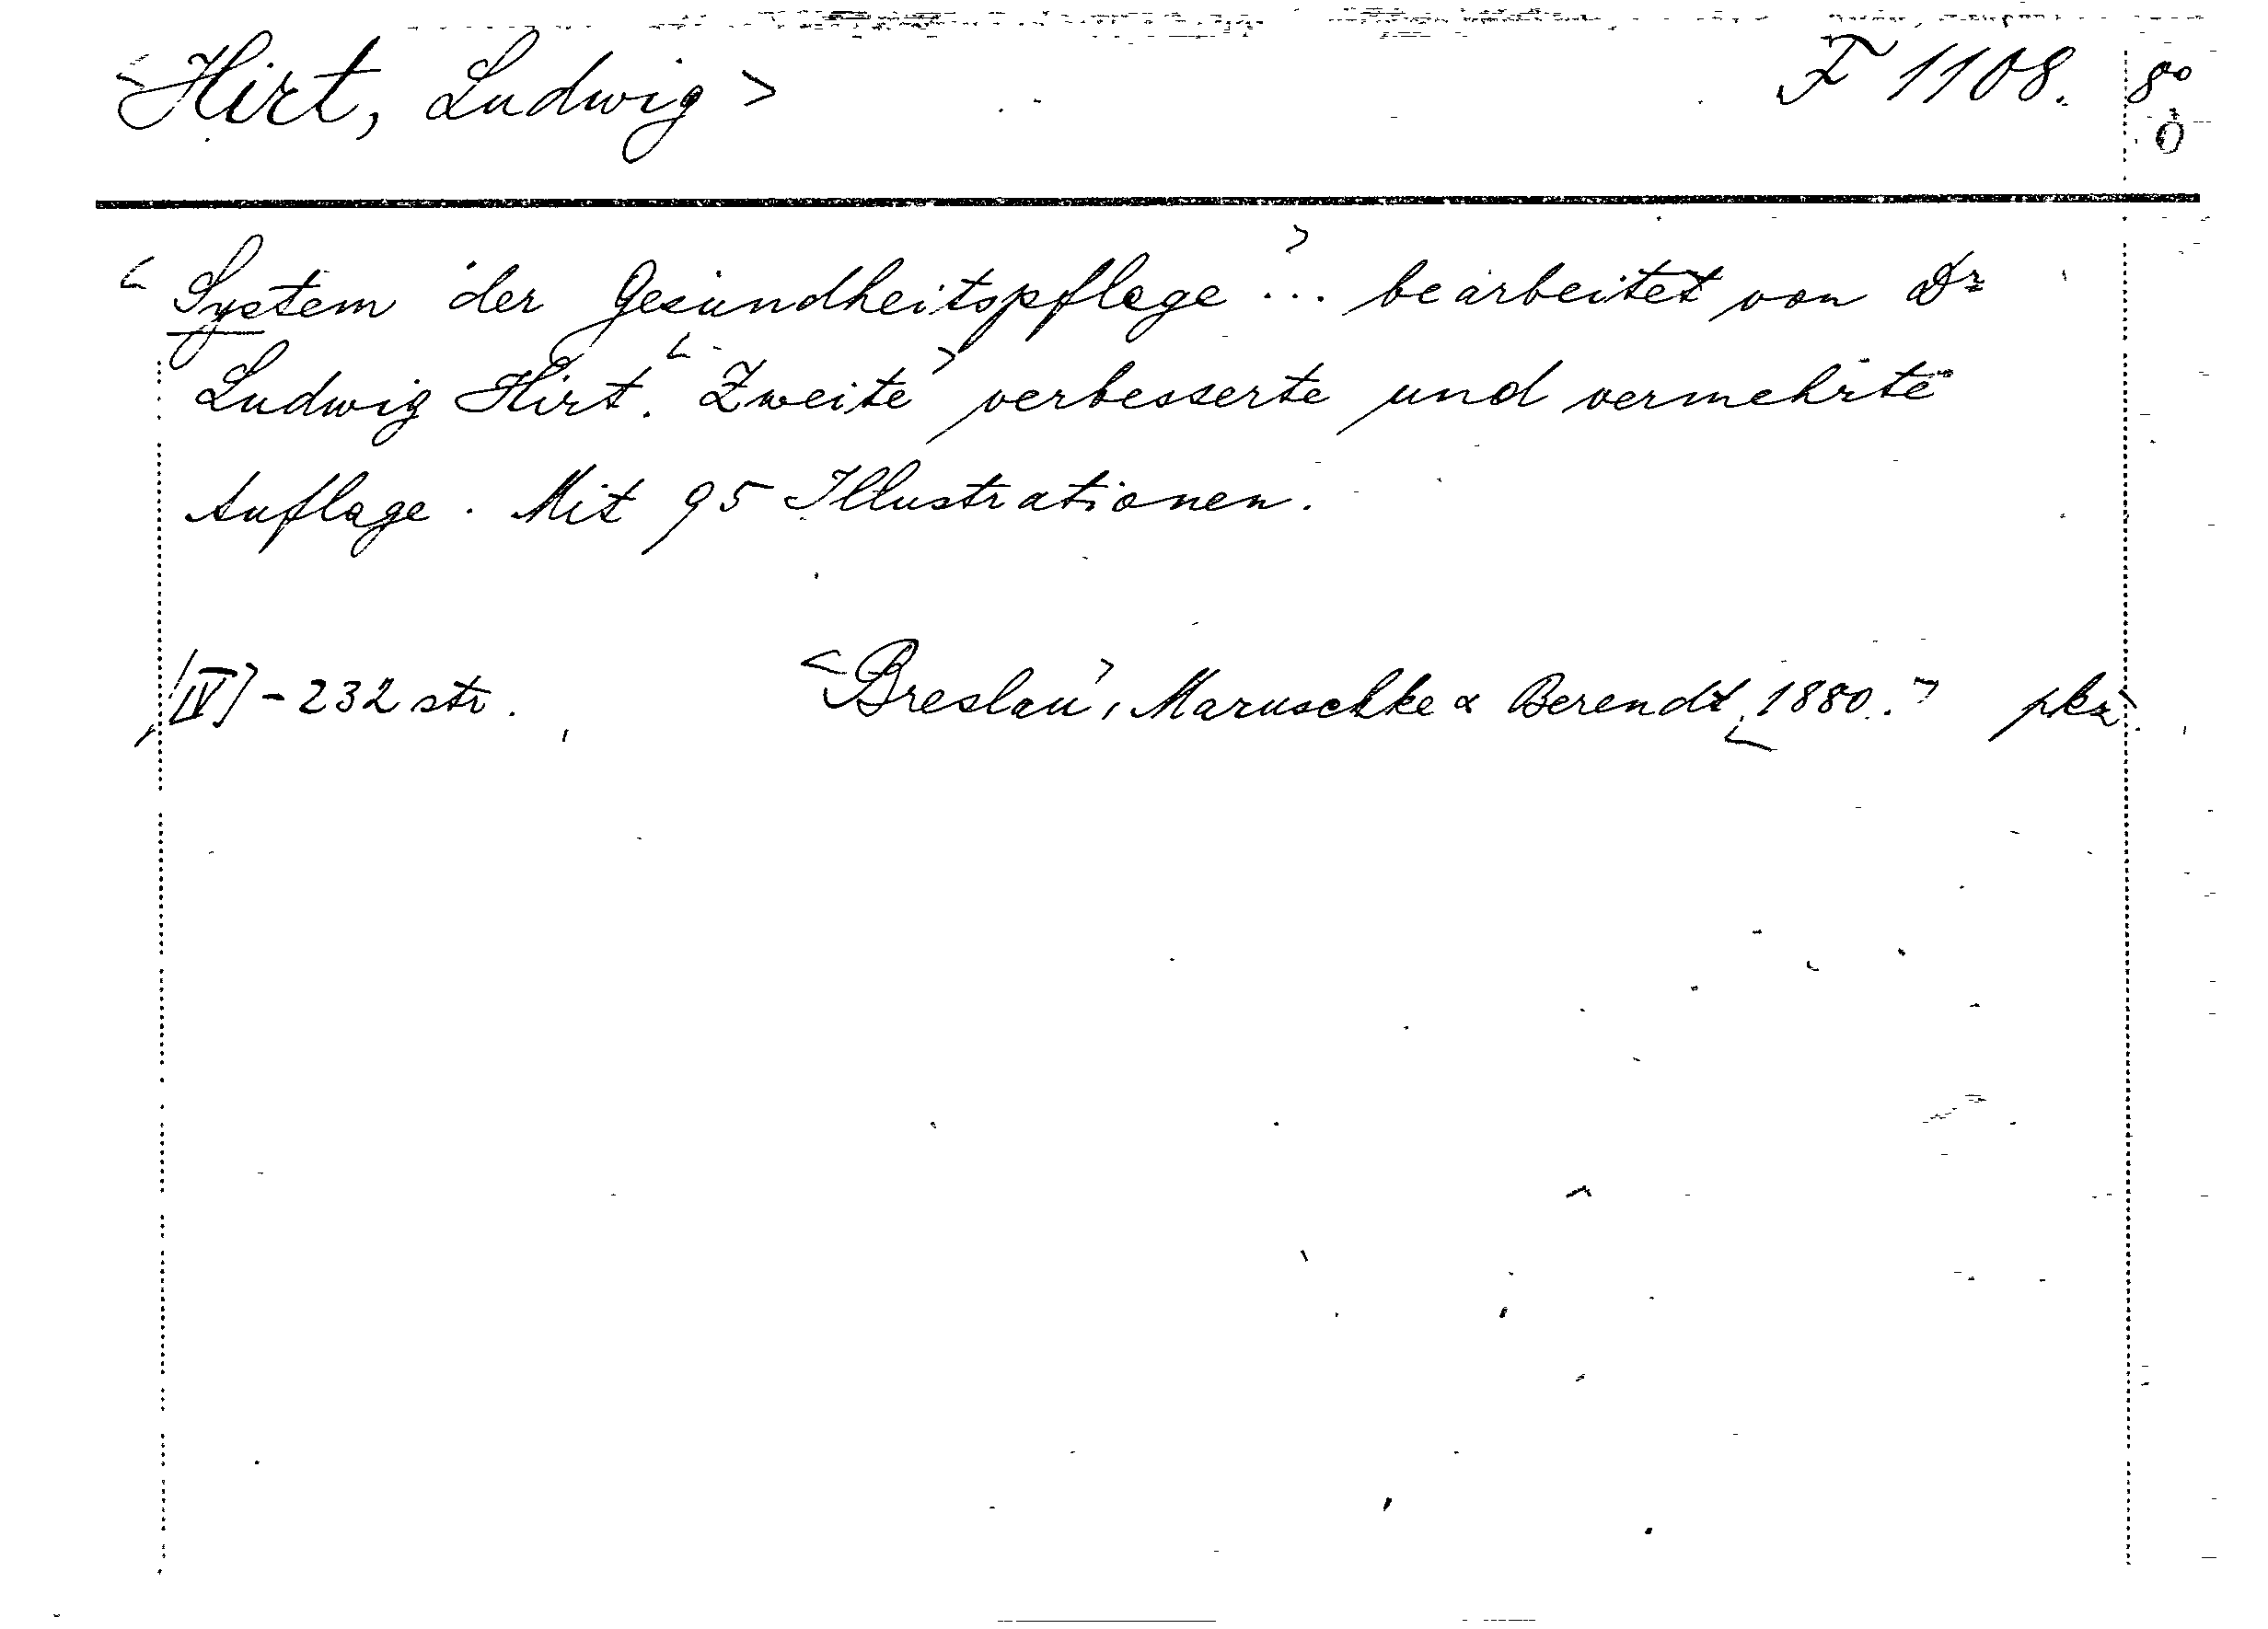 <Hirt, Ludwig> F 1108. 8º
<System der Gesundheitspflege ...> bearbeitet von Dr
Ludwig Hirt. <Zweite> verbesserte und vermehrte
Auflage. Mit 95 Illustrationen.
[IV] - 232 str. <Breslau>, Maruschke & Berendt <1880.>